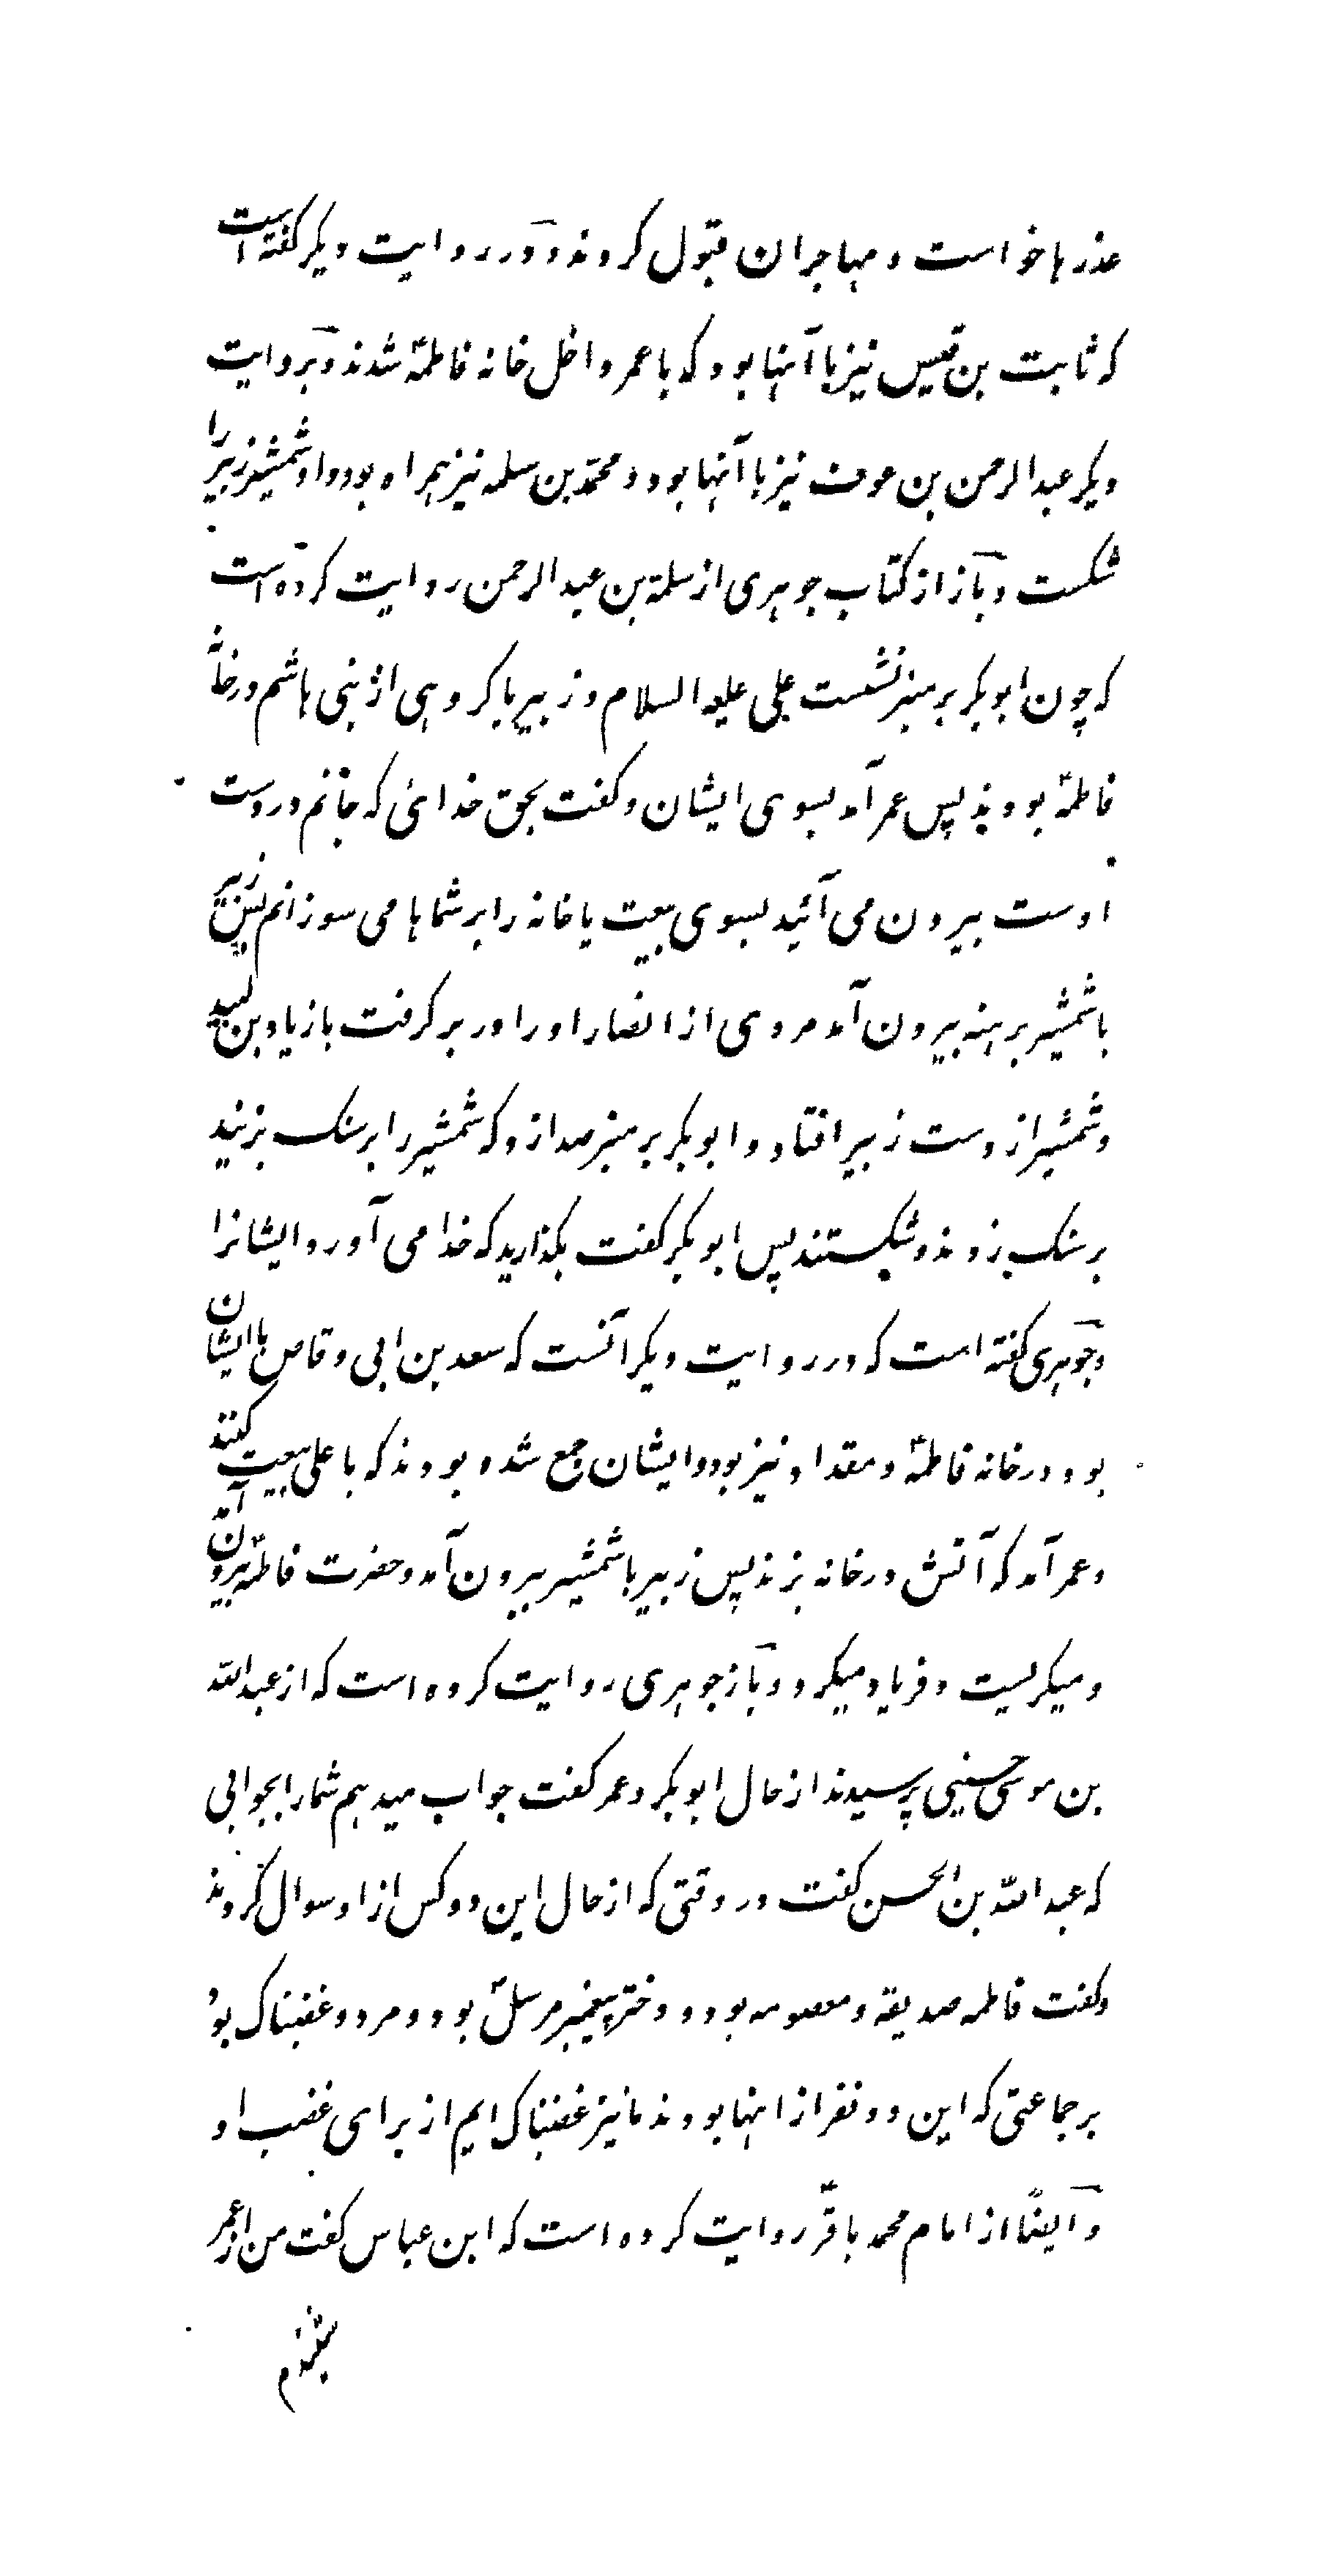 عذرها خواست و مهاجران قبول کردند و در روایت دیکر کفته است
که ثابت بن قیس نیز با آنها بود که با عمر داخل خانه فاطمهؑ شدند و بروایت
دیکر عبدالرحمن بن عوف نیز با آنها بود و محمّد بن سلمه نیز همراه بود و او شمشیر زبیر را
شکست و باز از کتاب جوهری از سلمة بن عبدالرحمن روایت کرده است
که چون ابوبکر بر منبر نشست علی علیه السلام و زبیر با کروهی از بنی هاشم در خانهٔ
فاطمهؑ بودند پس عمر آمد بسوی ایشان و کفت بحق خدائی که جانم در دست
اوست بیرون می آئید بسوی بیعت یا خانه را بر شماها می سوزانم پس زبیر
با شمشیر برهنه بیرون آمد مردی از انصار او را در بر کرفت با زیاد بن لبید
و شمشیر از دست زبیر افتاد و ابوبکر بر منبر صدا زد که شمشیر را بر سنک بزنید
بر سنک زدند و شکستند پس ابوبکر کفت بکذارید که خدا می آورد ایشانرا
و جوهری کفته است که در روایت دیکر آنست که سعد بن ابی وقاص با ایشان
بود در خانه فاطمهؑ و مقداد نیز بود و ایشان جمع شده بودند که با علی بیعت کنند
و عمر آمد که آتش در خانه بزند پس زبیر با شمشیر بیرون آمد و حضرت فاطمهؑ بیرون آمد
و میکریست و فریاد میکرد و باز جوهری روایت کرده است که از عبدالله
بن موسی حسینی پرسیدند از حال ابوبکر و عمر کفت جواب میدهم شما را بجوابی
که عبدالله بن الحسن کفت در وقتی که از حال این دو کس از او سوال کردند
و کفت فاطمه صدیقه و معصومه بود و دختر پیغمبر مرسلؐ بود و مرد و غضبناک بود
بر جماعتی که این دو نفر از انها بودند ما نیز غضبناک ایم از برای غضب او
و ایضًا از امام محمد باقرؑ روایت کرده است که ابن عباس کفت من از عمر
شنیدم